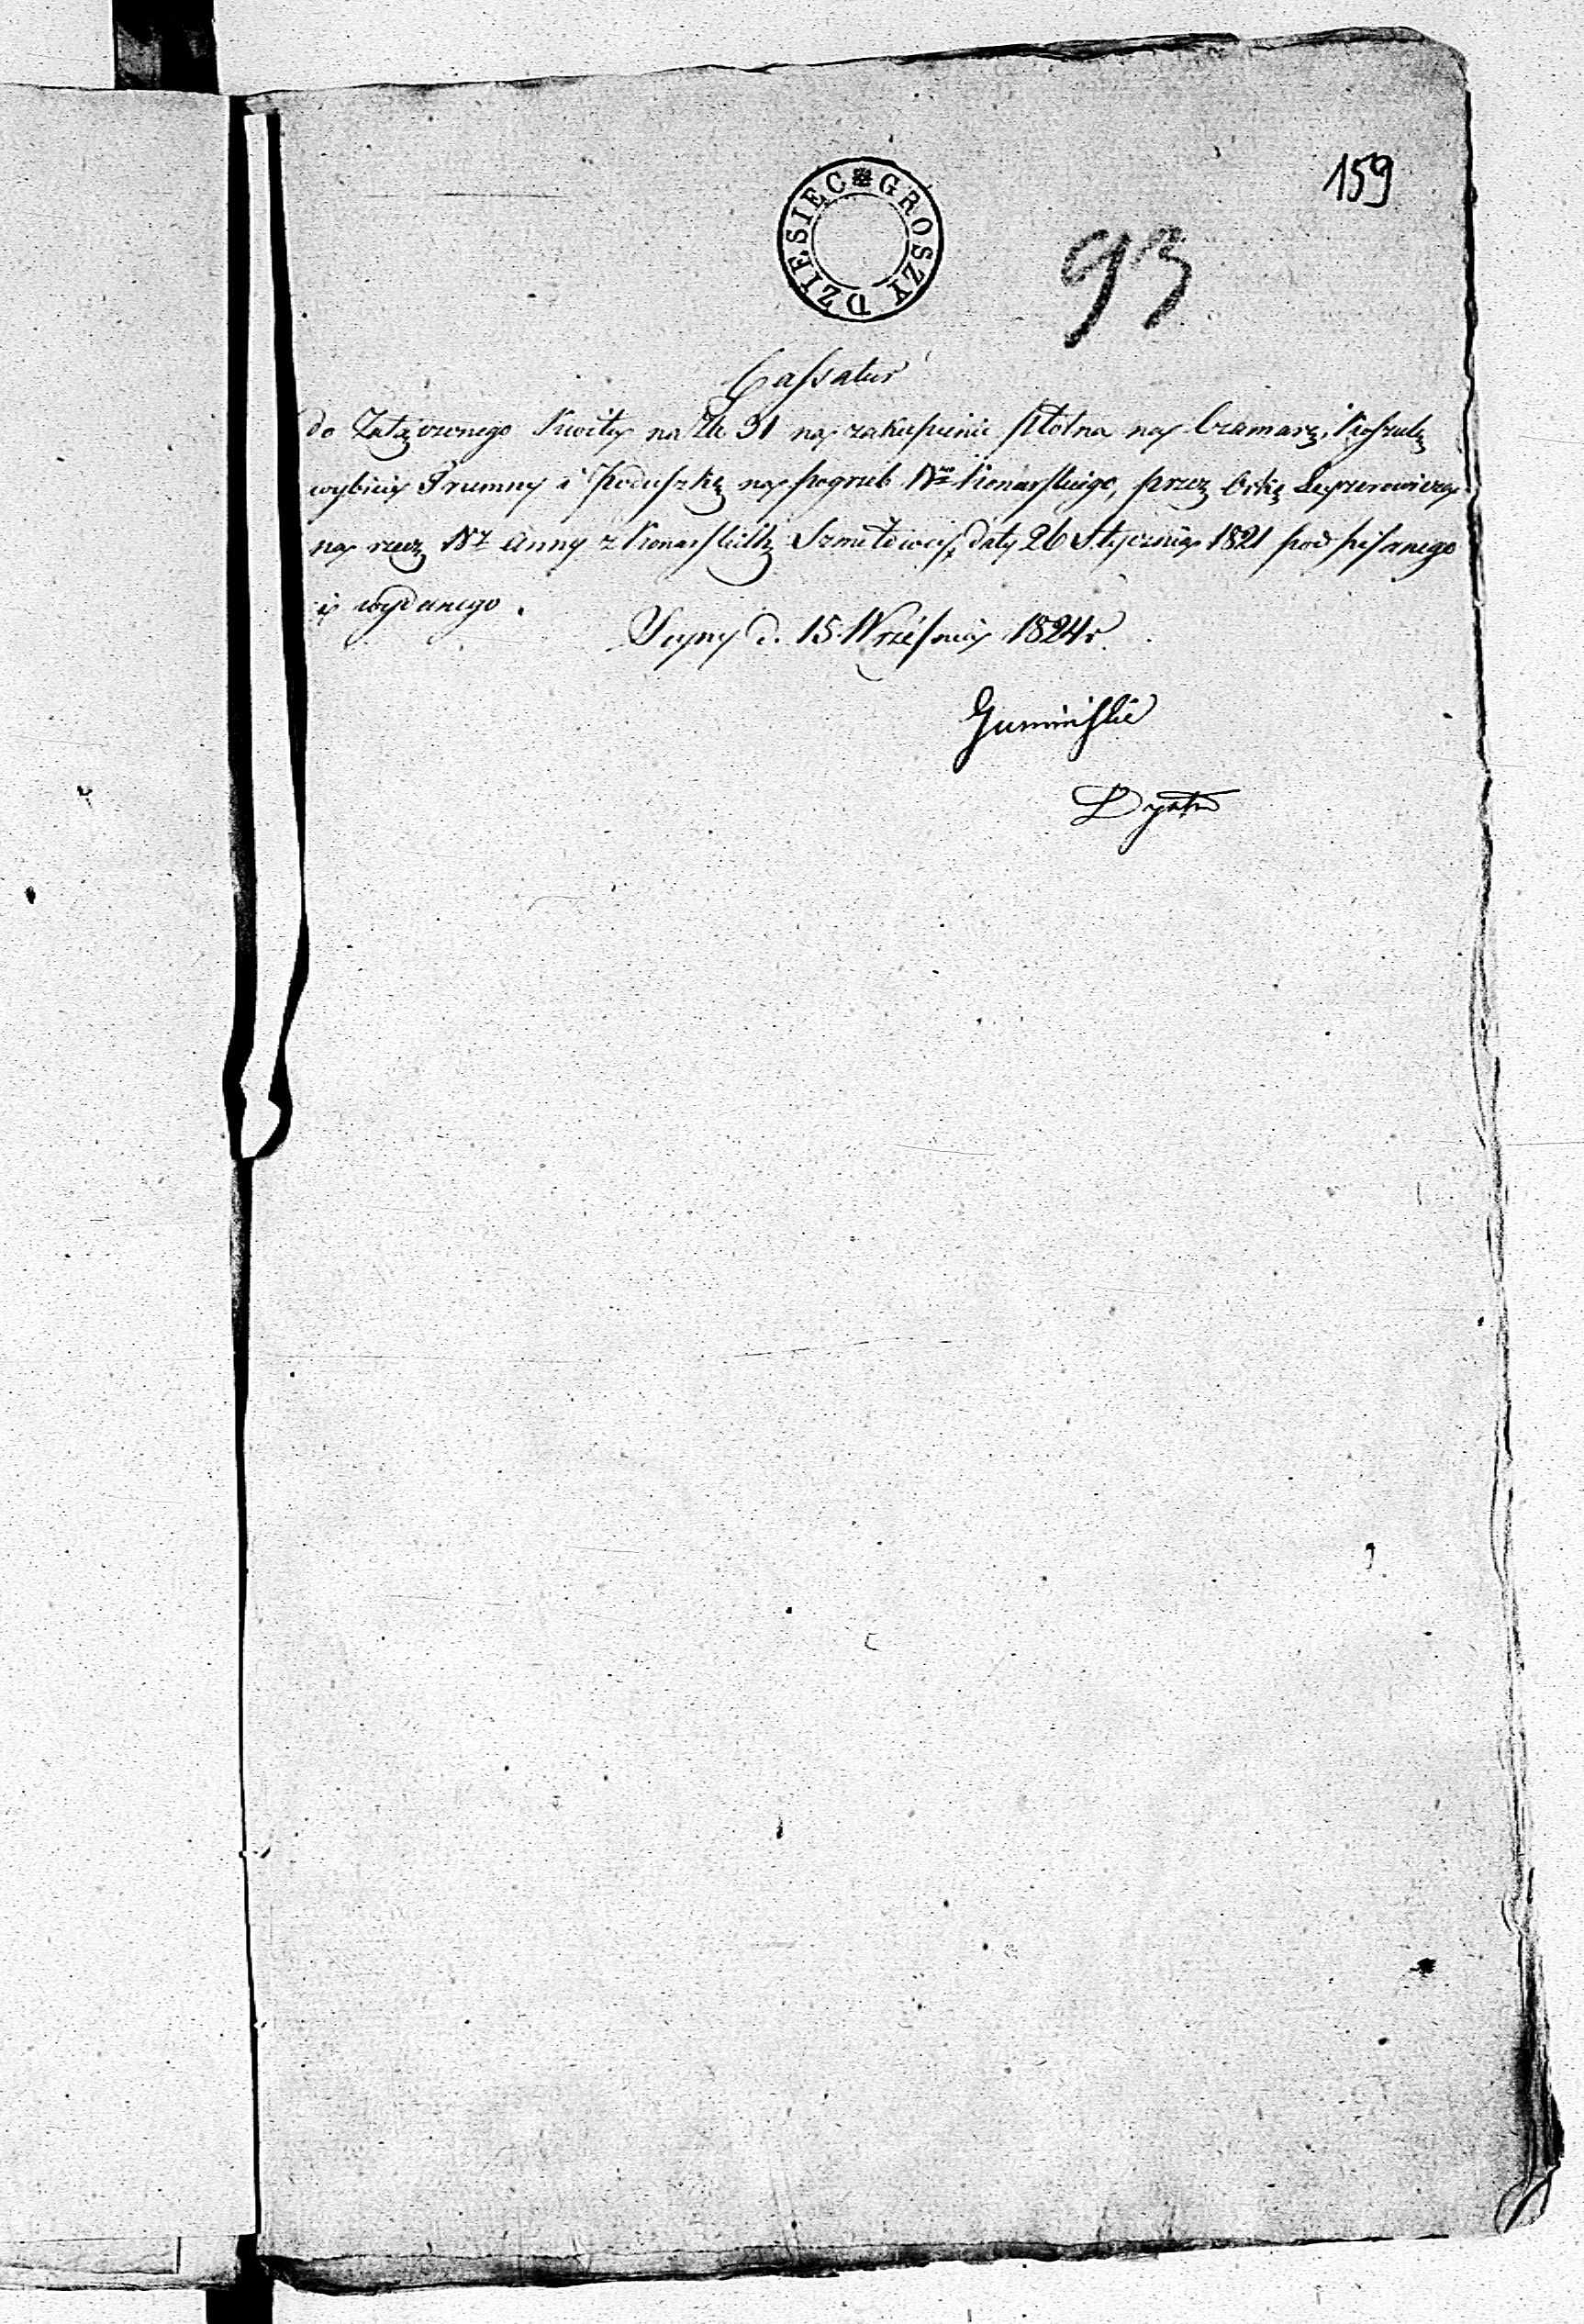 159
DZIESIEC GROSZY
93
Cassatur
do Załączonego Kwitu na Zł 31 na zakupienie płótna na Czamarę, Koszulę
wybicia Trumny i Poduszkę na pogrzeb Konarskiego, przez
na rzecz Anny z Konarskich Szmitowey, daty 26 Stycznia 1821 podpisanego
i wydanego.
Seyny d. 15 Wrzesnia 1824 r.
Gumiński